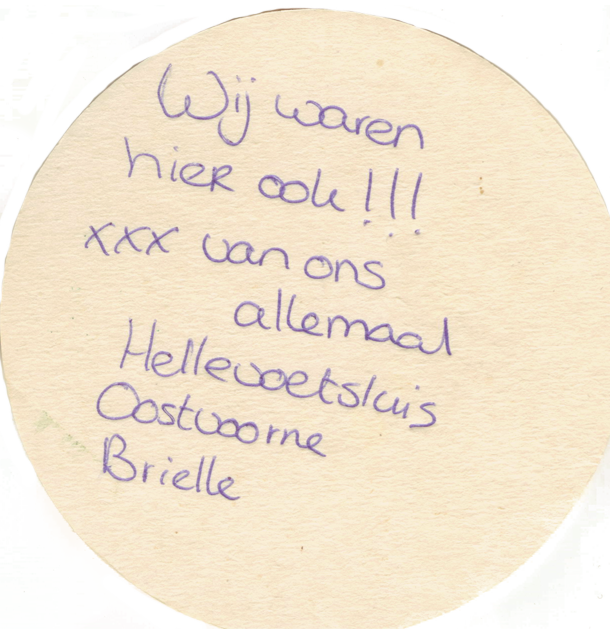 Wij waren
hier ook!!!
xxx van ons
allemaal
Hellevoetsluis
Oostvoorne
Brielle